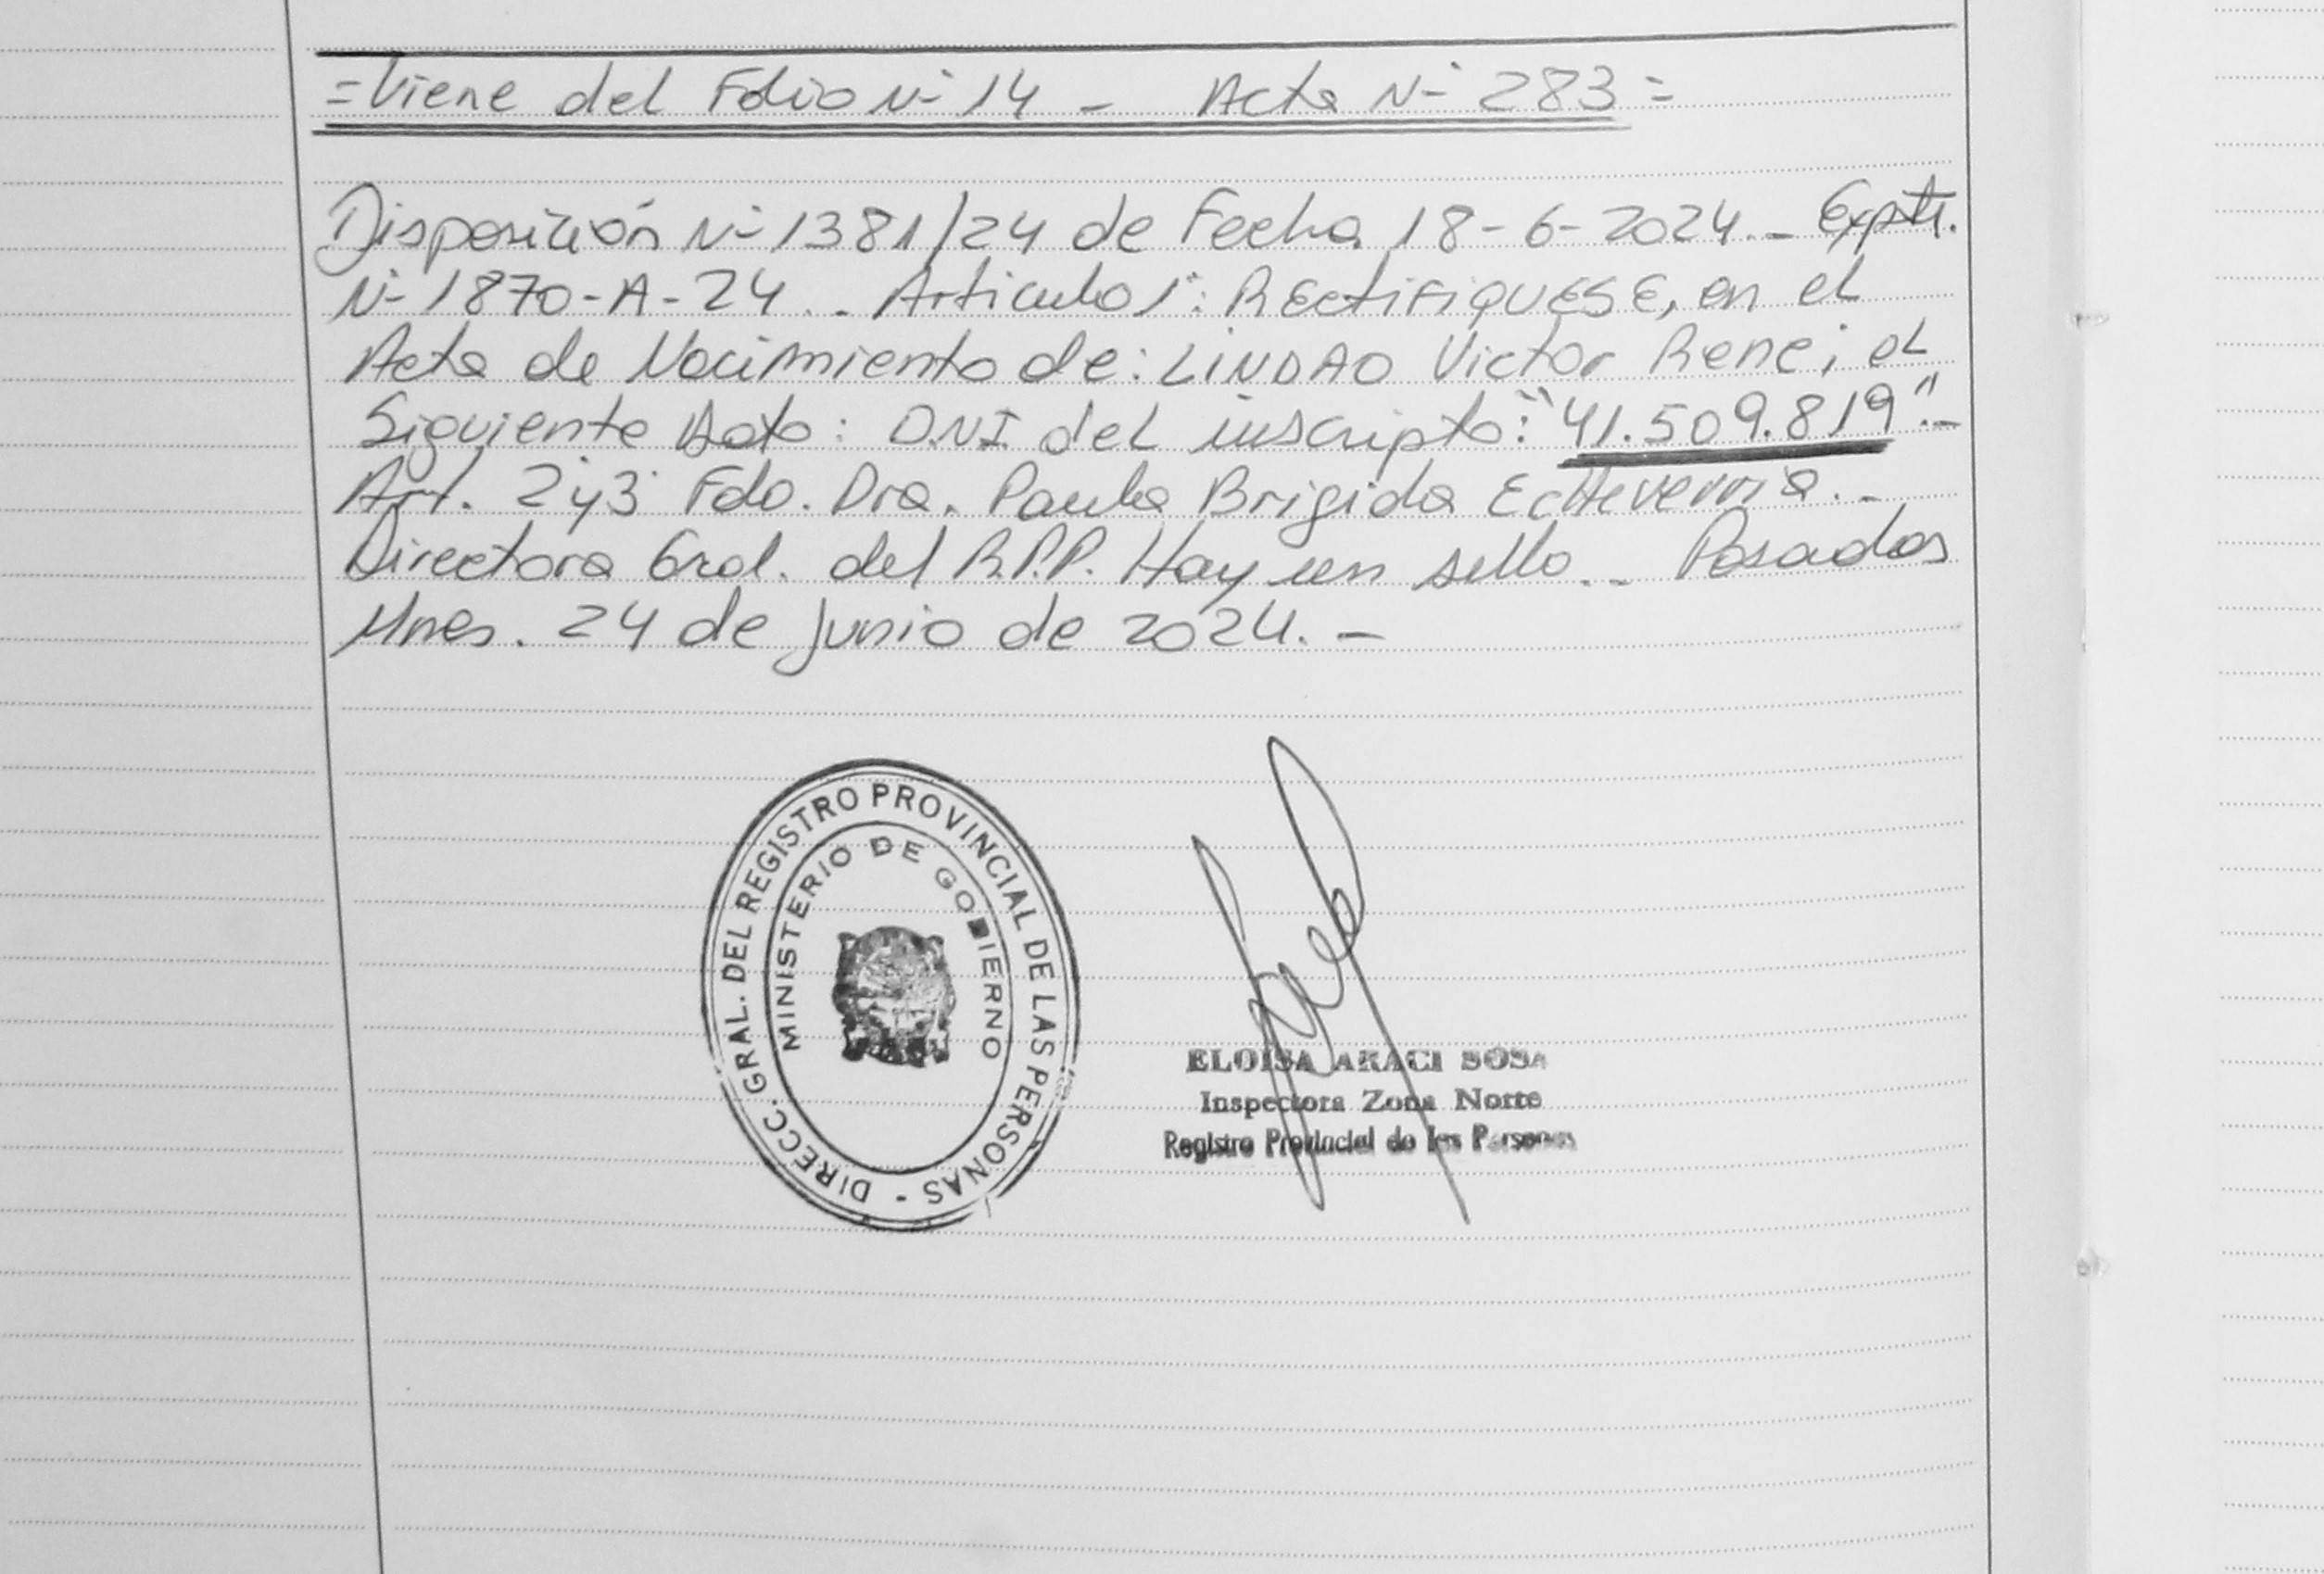 =Viene del Folio Nº 14 - Acta Nº 283=
Disposición Nº 1381/24 de Fecha 18-6-2024.- Expte.
Nº 1870-A-24.- Articulo 1º: RECtiFiQUESE, en el
Acta de Nacimiento de: LINDAO Victor Rene; el
Siguiente Dato: D.N.I del inscripto: "41.509.819".-
Art. 2º y 3º Fdo. Dra. Paula Brigida Echeverria.-
Directora Gral. del R.P.P. Hay un sello.- Posadas
Mnes. 24 de junio de 2024.-
DIRECC. GRAL. DEL REGISTRO PROVINCIAL DE LAS PERSONAS -
MINISTERIO DE GOBIERNO
ELOISA ARACI SOSA
Inspectora Zona Norte
Registro Provincial de las Personas